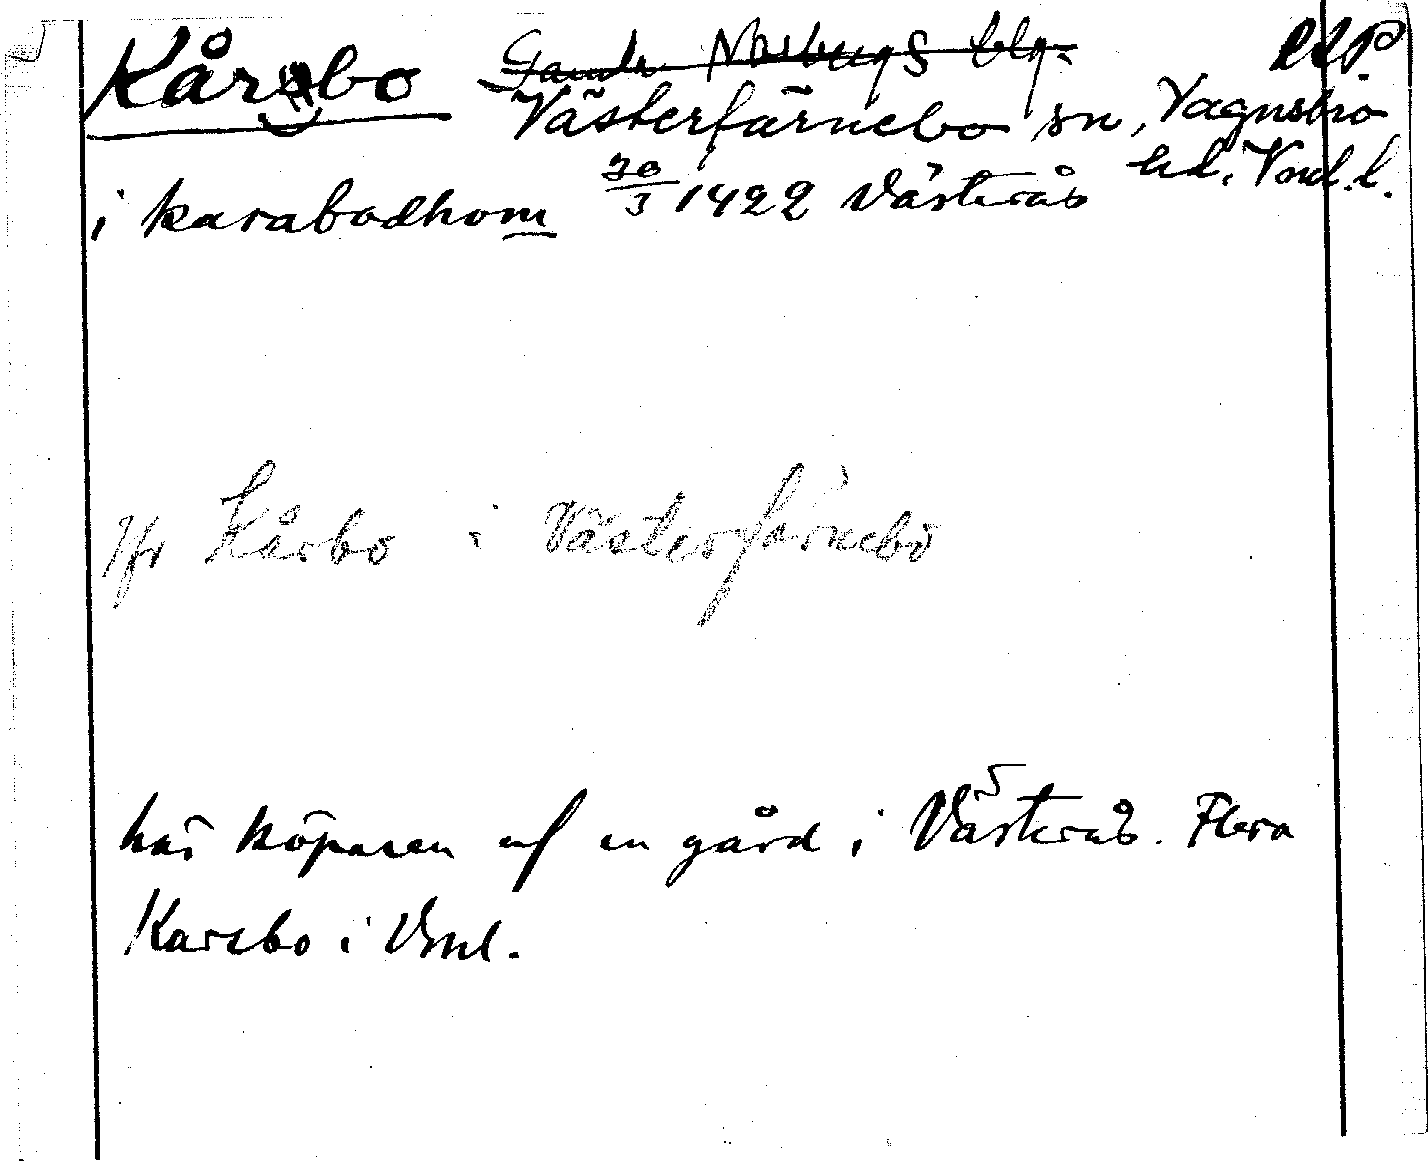 Kårsbo Gamla Norbergs blg. RAP.
Västerfärnebo sn, Vagnsbro
hd. Vml.l.
i karabodhom 30/3 1422 Västerås
Jfr Kårbo i Västerfärnebo
här köparen af en gård i Västerås. Flera
Karsbo i Vml.